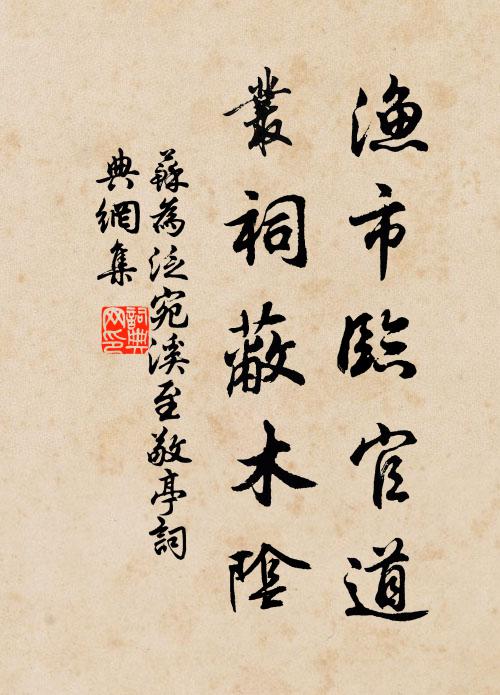 漁市臨官道
叢祠蔽木陰
蘇為泛宛溪至敬亭詞
典網集
詞典網印